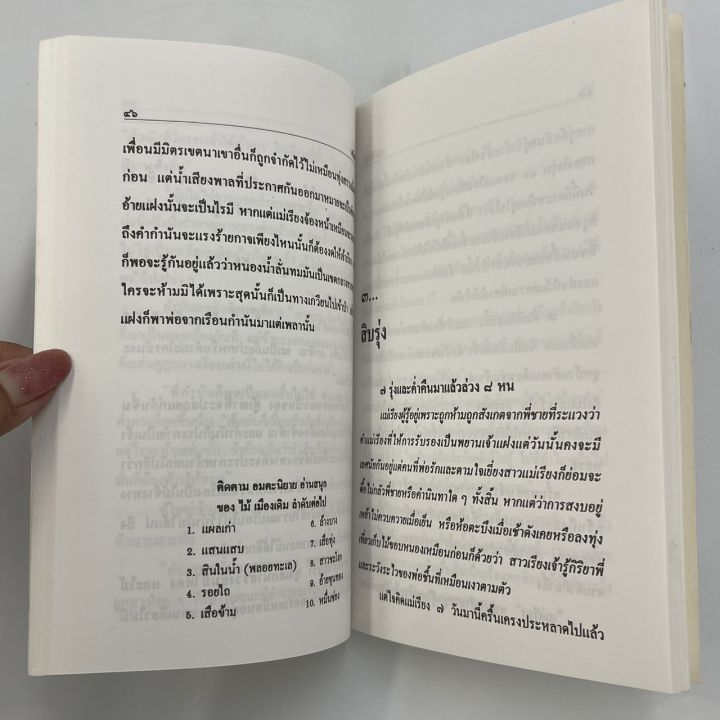 ๔๖
เพื่อนมีมิตรเขตนาเขาอื่นก็ถูกจำกัดไว้ไม่เหมือนทุ่งตราบ
ก่อน แต่น้ำเสียงพาลที่ประกาศกันออกมาหมายจะเป็น
อ้ายแฝงนั้นจะเป็นไรมี หากแต่แม่เรียงจ้องหน้าเหมือน
ถึงคำกำนันจะแรงร้ายกาจเพียงไหนนั้นก็ต้องงดให้
ก็พอจะรู้กันอยู่แล้วว่าหนองน้ำลั่นทมมันเป็นเขตกลาง
ใครจะห้ามมิได้เพราะสุดนั้นก็เป็นทางเกวียนไปเข้าป่า
แฝงก็พาพ่อจากเรือนกำนันมาแต่เพลานั้น
ติดตาม อมตะนิยาย อ่านสนุก
ของ ไม้ เมืองเดิม ลำดับต่อไป
1. แผลเก่า
2. แสนแสบ
3. สินในน้ำ (พลอยทะเล)
4. รอยไถ
5. เสือข้าม
6. ล้างบาง
7. เสือทุ่ง
8. สาวชะโงก
9. อ้ายขุนทอง
10. หมื่นซ่อง
๓...
สิบรุ่ง
๗ รุ่งและค่ำคืนมาแล้วล่วง ๘ หน
แม่เรียงผู้รู้อยู่เพราะถูกห้ามถูกสังเกตจากพี่ชายที่ระแวงว่า
คำแม่เรียงที่ให้การรับรองเป็นพยานเจ้าแฝงแต่วันนั้นคงจะมี
เลศนัยกันอยู่แต่คนที่พ่อรักและตามใจเยี่ยงสาวแม่เรียงก็ย่อมจะ
ดื้อไม่กลัวพี่ชายหรือคำนินทาใด ๆ ทั้งสิ้น หากแต่ว่าการสงบอยู่
เหย้าไม่ควบควายเมื่อเย็น หรือห้อตะบึงเมื่อเช้าดังเคยหรือลงทุ่ง
เที่ยวเก็บไม้ขอบหนองเหมือนก่อนก็ด้วยว่า สาวเรียงเจ้ารู้กิริยาพี่
และระวังระไวของพ่อขึ้นที่เหมือนเงาตามตัว
แต่ใจคิดแม่เรียง ๗ วันมานี้ครึ้นเครงประหลาดไปแล้ว